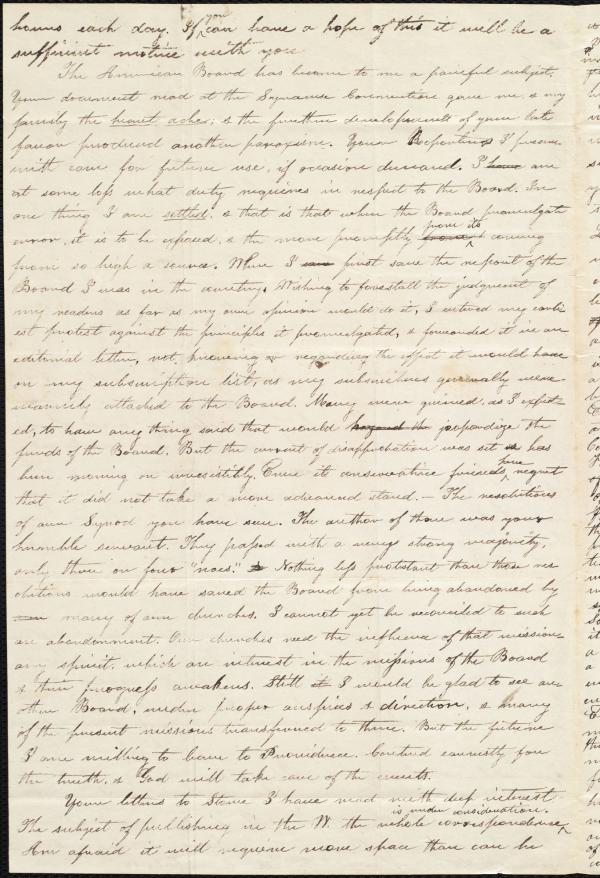 hours each day. If you can have a hope of this it will be a
sufficient motive with you
The American Board has become to me a painful subject.
Your document read at the Syracuse Convention gave me & my
family the heart ache; & the further developments of your late
favor produced another paroxism. Your Reporting I preserve
with care for future use, if occasion demand. I have am
at some loss what duty requires in respect to the Board. In
one thing I am settled, & that is that when the Board promulgate
error, it is to be exposed, & the more promptly from its coming
from so high a source. When I saw first saw the report of the
Board I was in the country. Wishing to forestall the judgment of
my readers as far as my own opinion would do it, I entered my earli-
est protest against the principles it promulgated, & forwarded it in an
editorial letter, not knowing or regarding the effect it would have
on my subscription list, as my subscribers generally were
warmly attached to the Board. Many were grieved, as I expect-
ed, to have any thing said that would beyond the jeopardize the
funds of the Board. But the current of disapprobation was set & has
been moving on irresistibly. Even it conservative friends now regret
that it did not take a more advanced stand. — The resolutions
of our Synod you have seen. The author of those was your
humble servant. They passed with a very strong majority,
only three or four "noes." Nothing less protestant than those res
olutions would have saved the Board from being abandoned by
many of our churches. I cannot yet be reconciled to such
an abandonment. Our churches need the influence of that mission-
ary spirit, which an interest in the missions of the Board
& their progress awakens. Still I would be glad to see an-
other Board, under proper auspices & direction, & many
of the present missions transferred to them. But the future
I am willing to leave to Providence. Contend earnestly for
the truth, & God will take care of the events.
Your letters to Stowe I have read with deep interest
The subject of publishing in the W. the whole correspondence is under consideration.
Am afraid it will require more space than can be